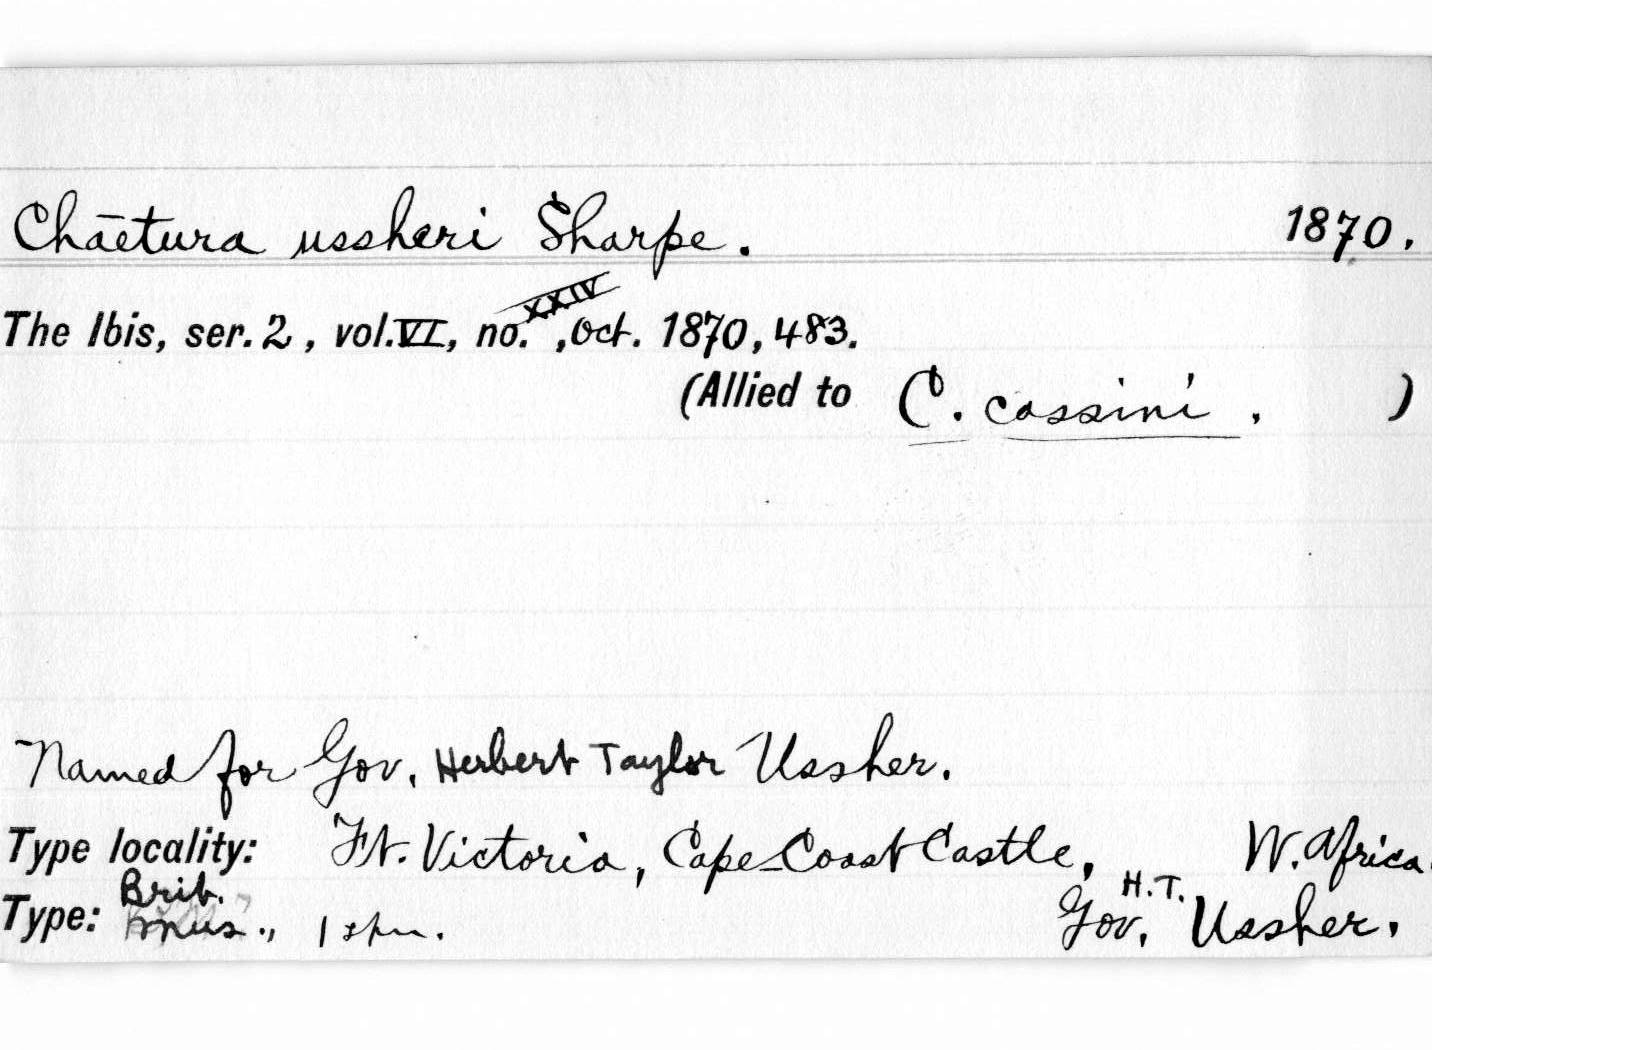 Chaetura ussheri Sharpe. 1870.
The Ibis, ser. 2, vol. VI, no. XXIV, Oct. 1870, 483.
(Allied to C. cassini. )
Named for Gov. Herbert Taylor Ussher.
Type locality: Ft. Victoria, Cape Coast Castle, W. Africa.
Type: Brit. Mus., 1 spm. Gov. H.T. Ussher.